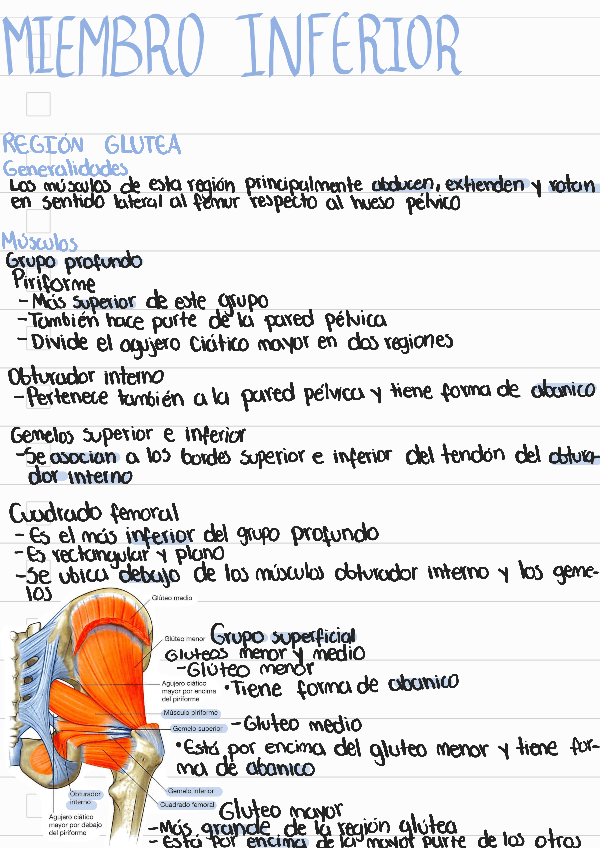 MIEMBRO INFERIOR
REGIÓN GLUTEA
Generalidades
Los músculos de esta región principalmente abducen, extienden y rotan
en sentido lateral al fémur respecto al hueso pélvico
Músculos
Grupo profundo
Piriforme
-Más superior de este grupo
-También hace parte de la pared pélvica
-Divide el agujero ciático mayor en dos regiones
Obturador interno
-Pertenece también a la pared pélvica y tiene forma de abanico
Gemelos superior e inferior
-Se asocian a los bordes superior e inferior del tendón del obtura-
dor interno
Cuadrado femoral
-Es el más inferior del grupo profundo
-Es rectangular y plano
-Se ubica debajo de los músculos obturador interno y los geme-
los
Glúteo medio
Glúteo menor
Agujero ciático
mayor por encima
del piriforme
Músculo piriforme
Gemelo superior
Gemelo inferior
Cuadrado femoral
Obturador
interno
Agujero ciático
mayor por debajo
del piriforme
Grupo superficial
Gluteos menor y medio
-Glúteo menor
•Tiene forma de abanico
-Gluteo medio
•Está por encima del gluteo menor y tiene for-
ma de abanico
Gluteo mayor
-Más grande de la región glútea
-Está por encima de la mayor parte de los otros